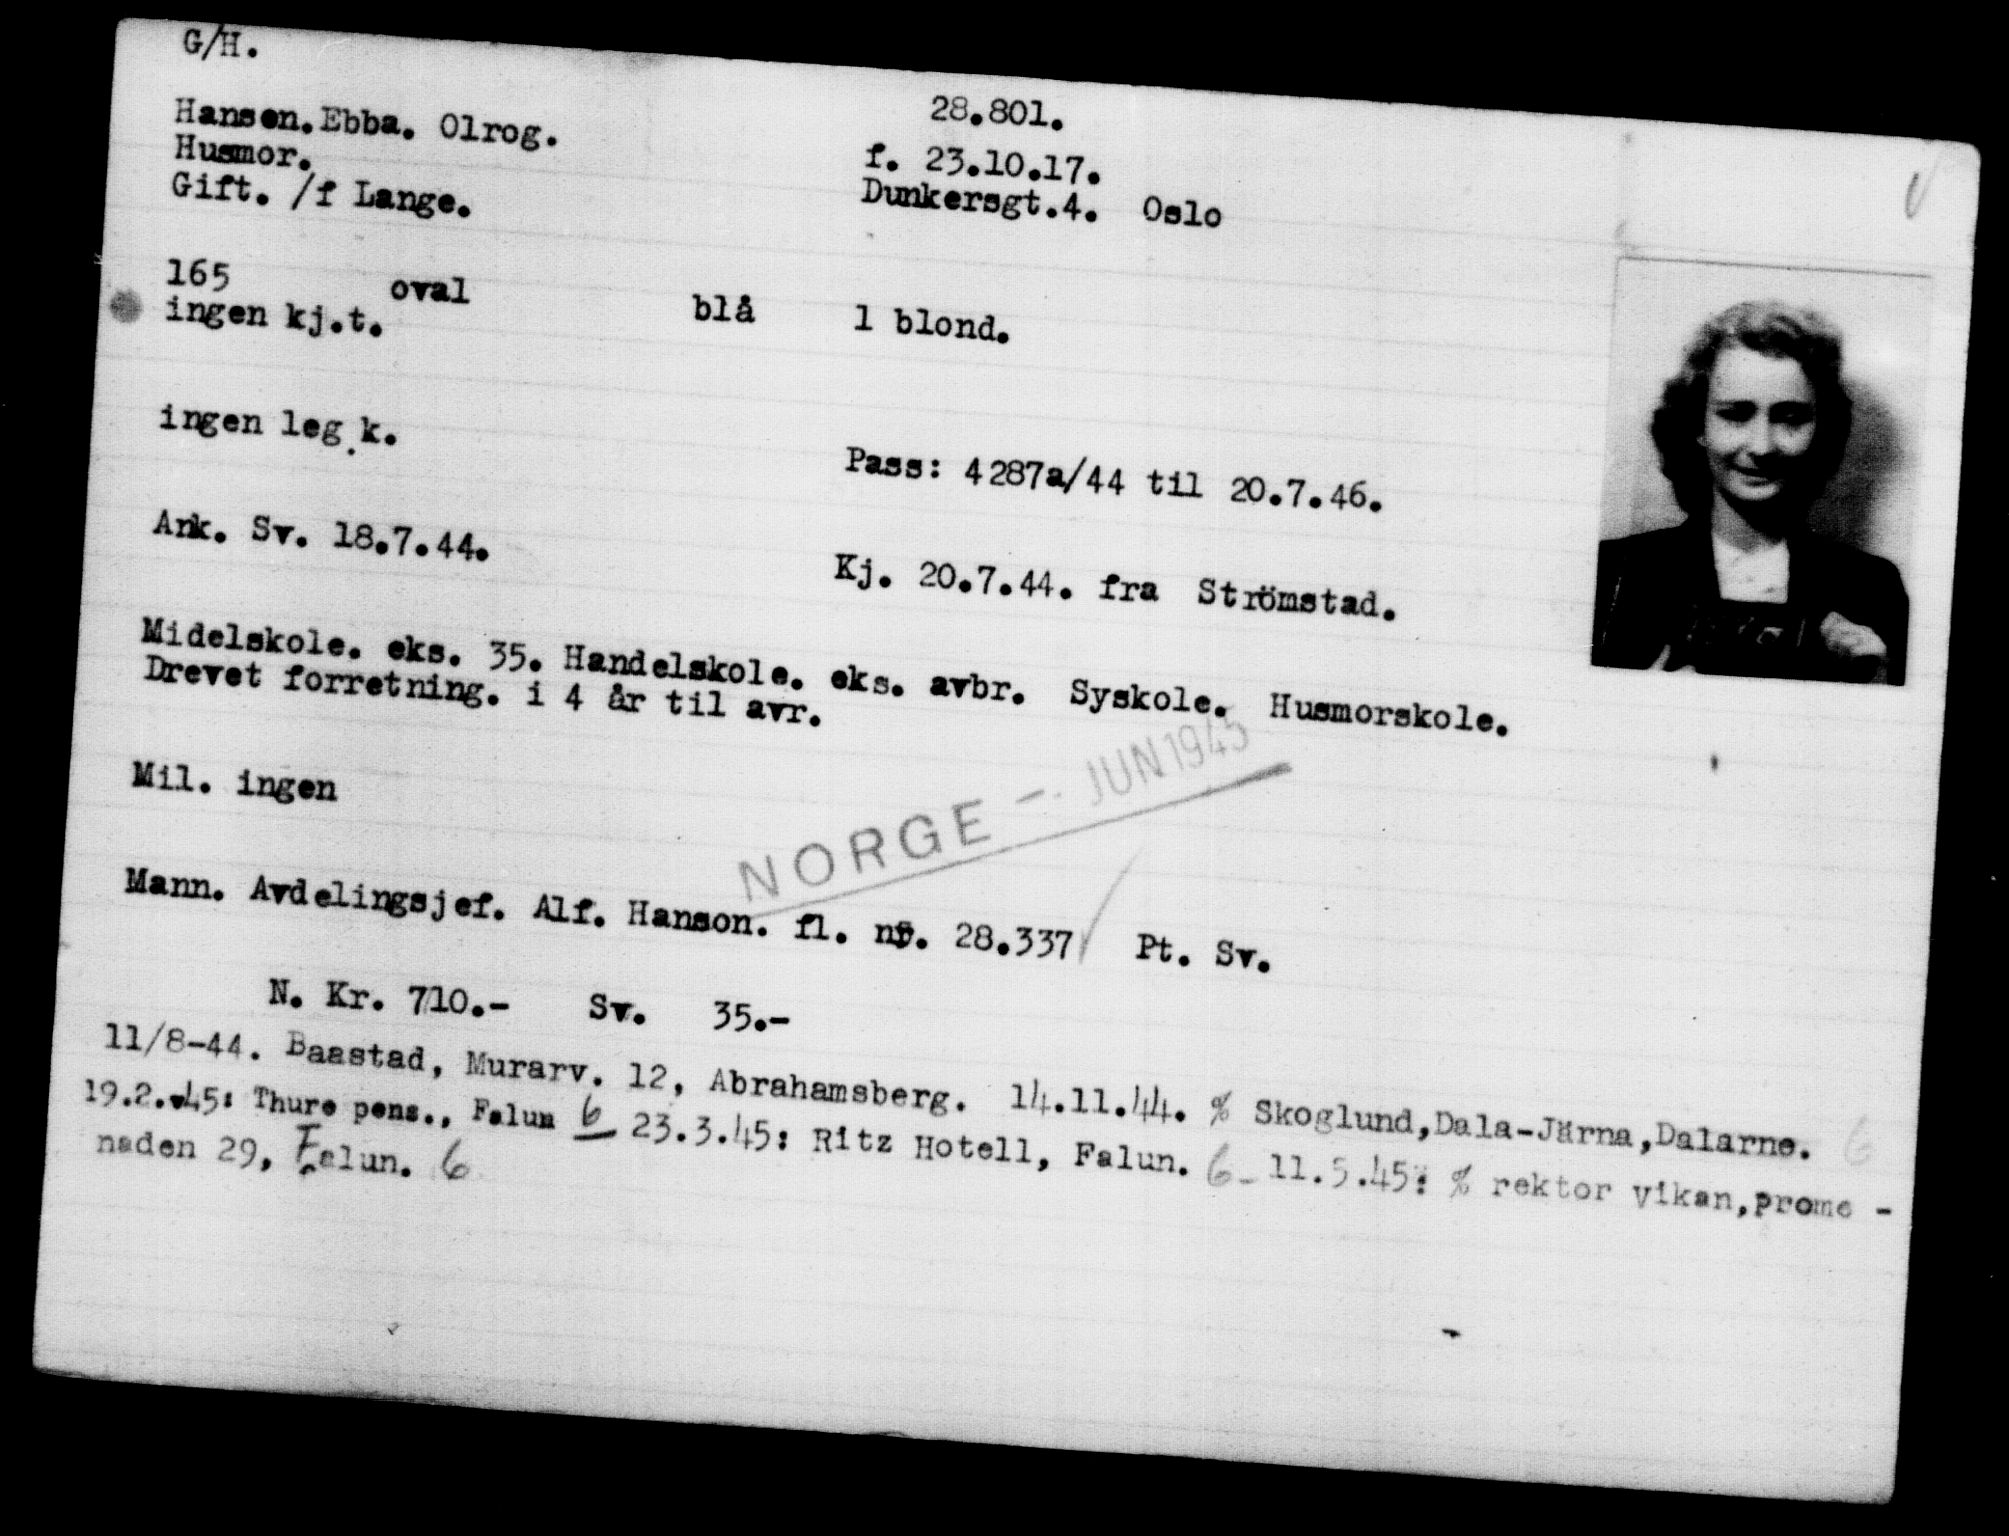 G/H.
28.801.
Hansen.Ebba. Olrog.
f. 23.10.17.
Husmor.
Dunkersgt.4. Oslo
Gift. /f Lange.
165 oval blå l blond.
ingen kj.t.
ingen leg.k.
Pass: 4287a/44 til 20.7.46.
Ank. Sv. 18.7.44.
Kj. 20.7.44. fra Strömstad.
Midelskole. eks. 35. Handelskole. eks. avbr. Syskole. Husmorskole.
Drevet forretning. i 4 år til avr.
NORGE -. JUN 1945
Mil. ingen
Mann. Avdelingsjef. Alf. Hanson. fl. nr. 28.337 Pt. Sv.
N. Kr. 710.- Sv. 35.-
11/8-44. Baastad, Murarv. 12, Abrahamsberg. 14.11.44. % Skoglund,Dala-Järna,Dalarne. 6
19.2.45: Thure pens., Falun 6 23.3.45: Ritz Hotell, Falun. 6- 11.5.45: % rektor Vikan,prome -
naden 29, Falun. 6